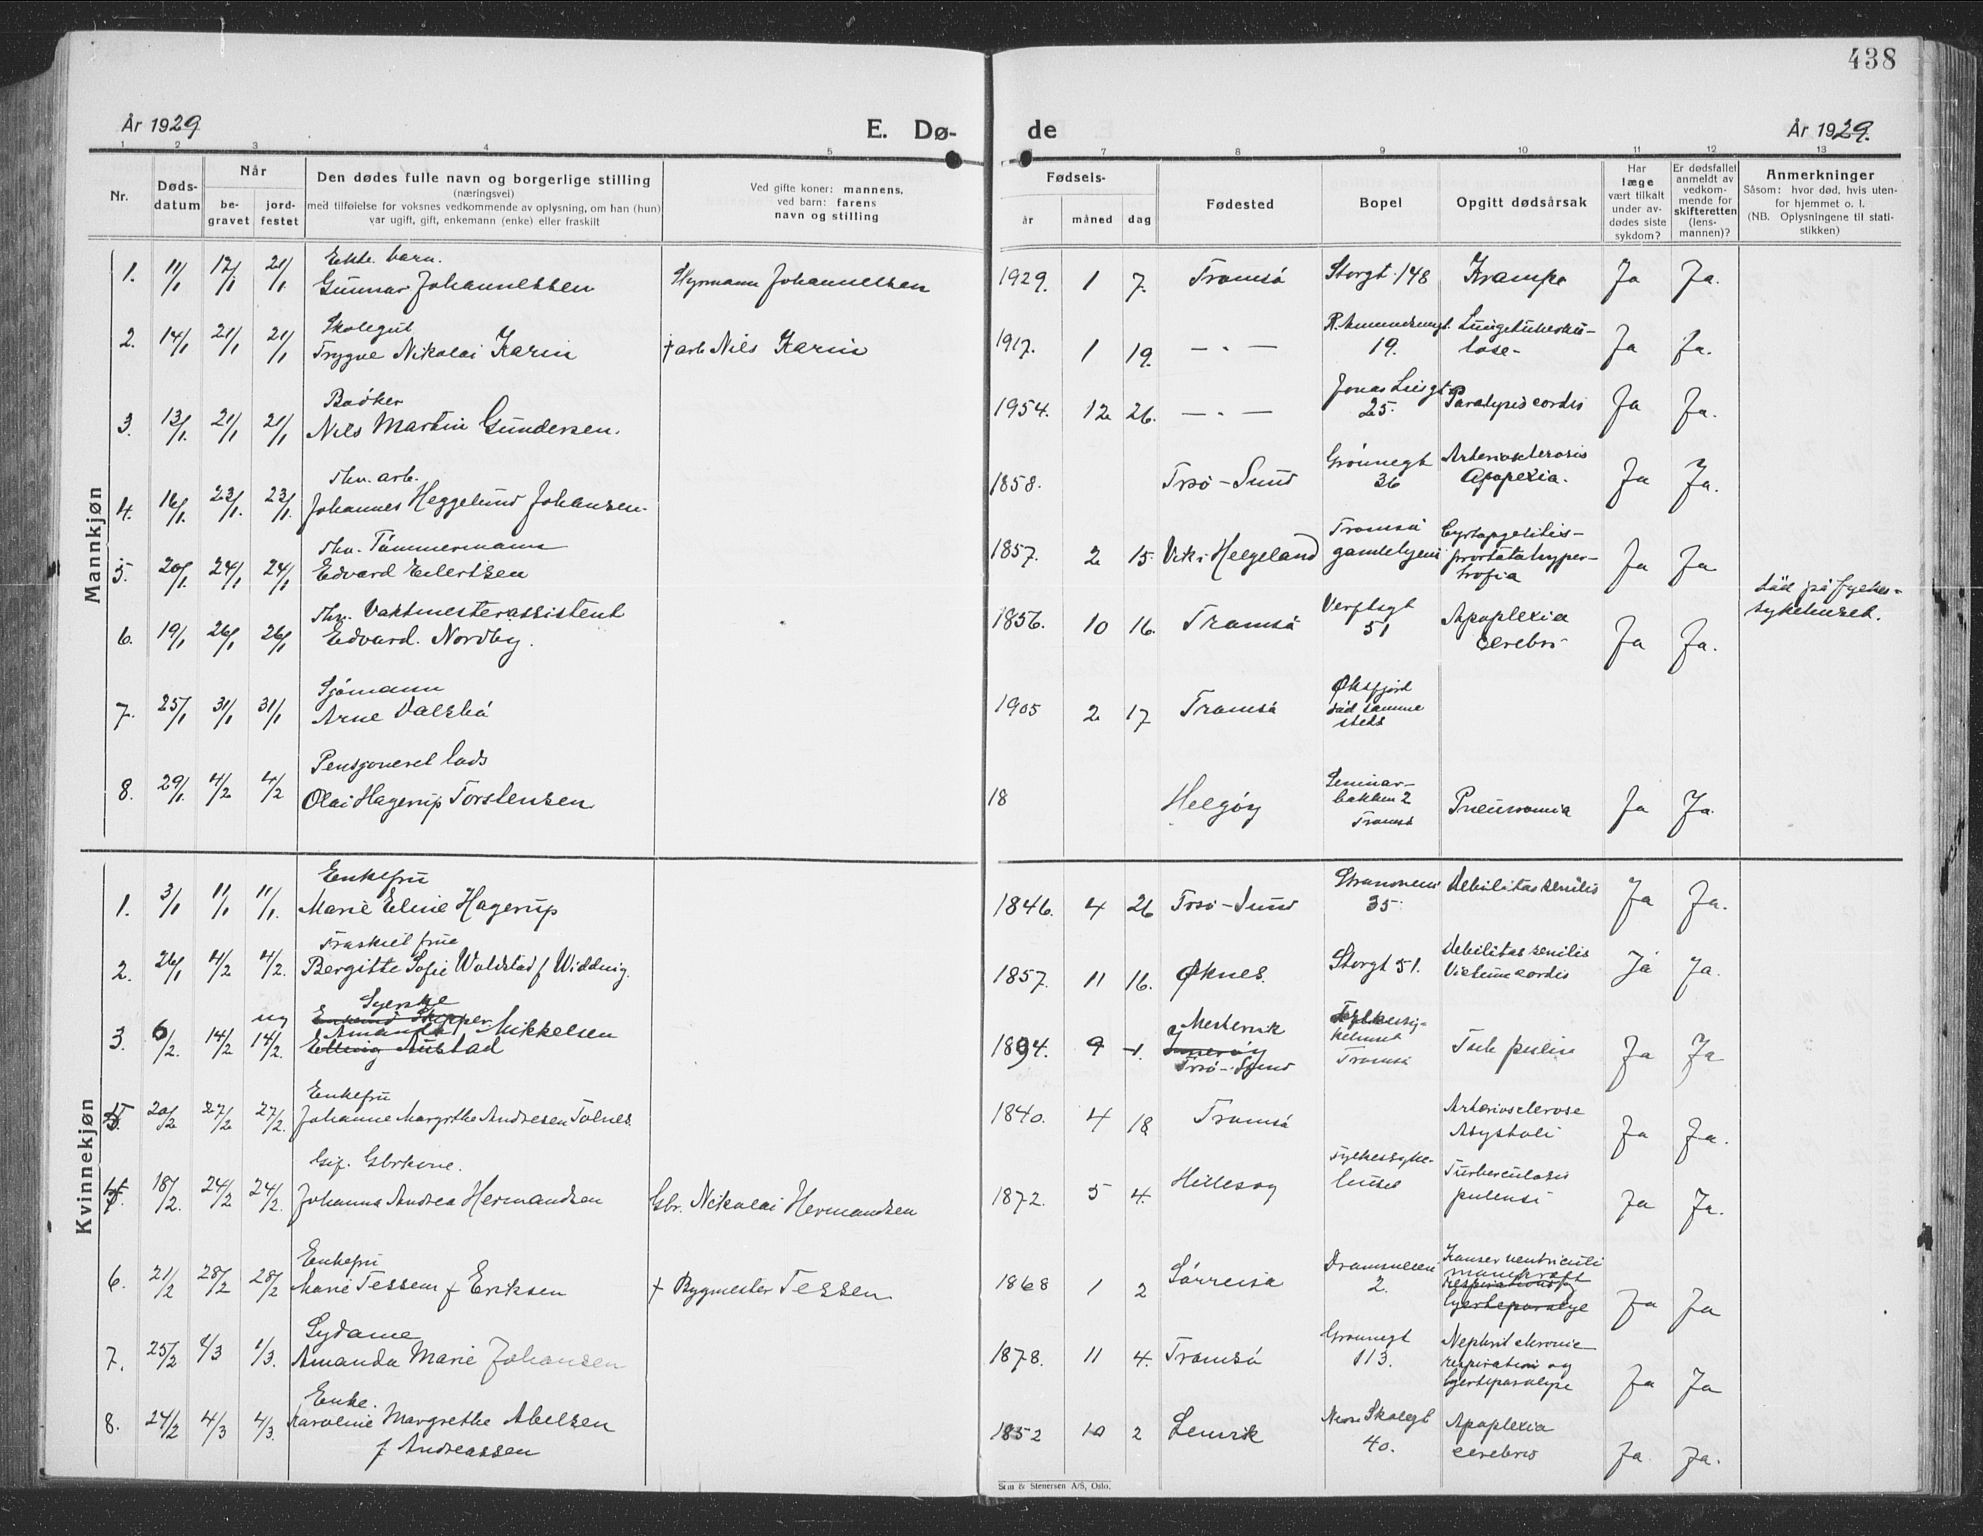 438
År 1929
E. Dø-
de
År 1929.
1 2 3 4 5 7 8 9 10 11 12 13
Nr.
Døds-
datum
Når
be-
gravet
jord-
festet
Den dødes fulle navn og borgerlige stilling
(næringsvei)
med tilføielse for voksnes vedkommende av oplysning, om han (hun)
var ugift, gift, enkemann (enke) eller fraskilt
Ved gifte koner: mannens,
ved barn: farens
navn og stilling
Fødsels-
år måned dag
Fødested
Bopel
Opgitt dødsårsak
Har
læge
vært tilkalt
under av-
dødes siste
sykdom?
Er dødsfallet
anmeldt av
vedkom-
mende for
skifteretten
(lens-
mannen)?
Anmerkninger
Såsom: hvor død, hvis uten-
for hjemmet o. l.
(NB. Oplysningene til stati-
stikken)
Mannkjøn
Ekte. barn.
1. 11/1 12/1 21/1 Gunnar Johannessen
Hyrmann Johannessen
1929. 1 7. Tromsø Storgt. 148 Krampe Ja Ja.
Skolegut
2. 14/1 21/1 21/1 Trygve Nikolai Karin
+ arb Nils Karin
1917. 1 19. — " — R. Amundsensgt. 19. Lungetuberku-
lose- Ja Ja.
Bødker
3. 13/1 21/1 21/1 Nils Martin Gundersen.
1954. 12 26. — " — Jonas Liesgt 25. Paralysis cordis Ja Ja.
Fhv. arb.
4. 16/1. 23/1. 23/1. Johannes Heggelund Johansen.
1858. Trsø-Sund Grønnegt 36 Arteriosclerosis
Apoplexia. Ja Ja.
Fhv. Tømmermann
5. 20/1. 24/1 24/1 Edvard Eilertsen
1857. 2 15. Vik i Helgeland Tromsø
gamlehjem
prostatahyper-
trofia Ja Ja
Fhv. Vaktmesterassistent
6. 19/1 26/1 26/1 Edvard Nordby.
1856. 10 16. Tromsø Verftsgt
51 Apoplexia
cerebri Ja Ja.
død på fylkes-
sykehuset.
Sjømann
7. 25/1 31/1 31/1 Arne Valsbø
1905 2 17 Tromsø Øksfjord
død samme
steds
Pensjoneret lods
8. 29/1. 4/2 4/2 Olai Hagerup Torstensen
18 Helgøy Seminar-
bakken 2
Tromsø Pneumonia Ja Ja.
Kvinnekjøn
Enkefru
1. 3/1 11/1 11/1. Marie Eline Hagerup
1846. 4 26 Trsø-Sund Strandveien
35. Debilitas senilis Ja Ja.
Fraskilt frue
2. 26/1 4/2 4/2. Bergitte Sofie Woldstad f Widding.
1857. 11 16. Øknes. Storgt 51. Debilitas senilis
Vitium cordis Ja Ja.
Syerske
ug Enkemd Skipper
3. 6/2. 14/2 14/2. Amanda Mikkelsen
Elling Austad
1894. 9 1. Mestervik
Trsø-Sund Fylkessy-
kehuset
Tromsø Tub. pulm Ja Ja
Enkefru
5. 20/2 27/2 27/2. Johanne Margrthe Andresen Tolnes.
1840. 4 18 Tromsø Arteriosclerose
Asystoli Ja Ja.
Gif. Gbrkone.
4. 18/2. 24/2 24/2. Johanna Andrea Hermandsen
Gbr. Nikolai Hermandsen
1872. 5 4. Hillesøy Fylkessyke-
huset Turberculosis
pulmnsi Ja Ja.
Enkefru
6. 21/2 28/2 28/2 Marie Tessem f Eriksen
+ Bygmester Tessem
1868 1 2 Sørreisa Dramsveien
2. Kanser ventriculi
marekraft
respirations og
hjerteparalyse Ja Ja
Sydame
7. 25/2 4/3 4/3. Amanda Marie Johansen
1878. 11 4. Tromsø Grønnegt
113. Nephrit chronic
respiration og
hjerteparalyse Ja Ja
Enke.
8. 24/2 4/3 4/3. Karoline Margrethe Abelsen
f Andreassen
1852 10 2 Lenvik Nore Skolegt
40. Apoplexia
cerebri Ja Ja.
Sem & Stenersen A/S, Oslo.